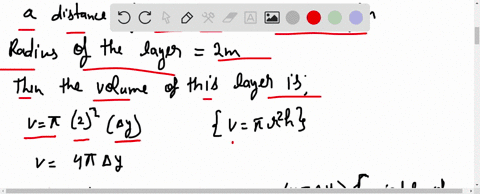 a distance
Radius of the layer = 2m
Then the volume of this layer is;
v = π (2)² (Δy) { v = π r² h }
v = 4π Δy